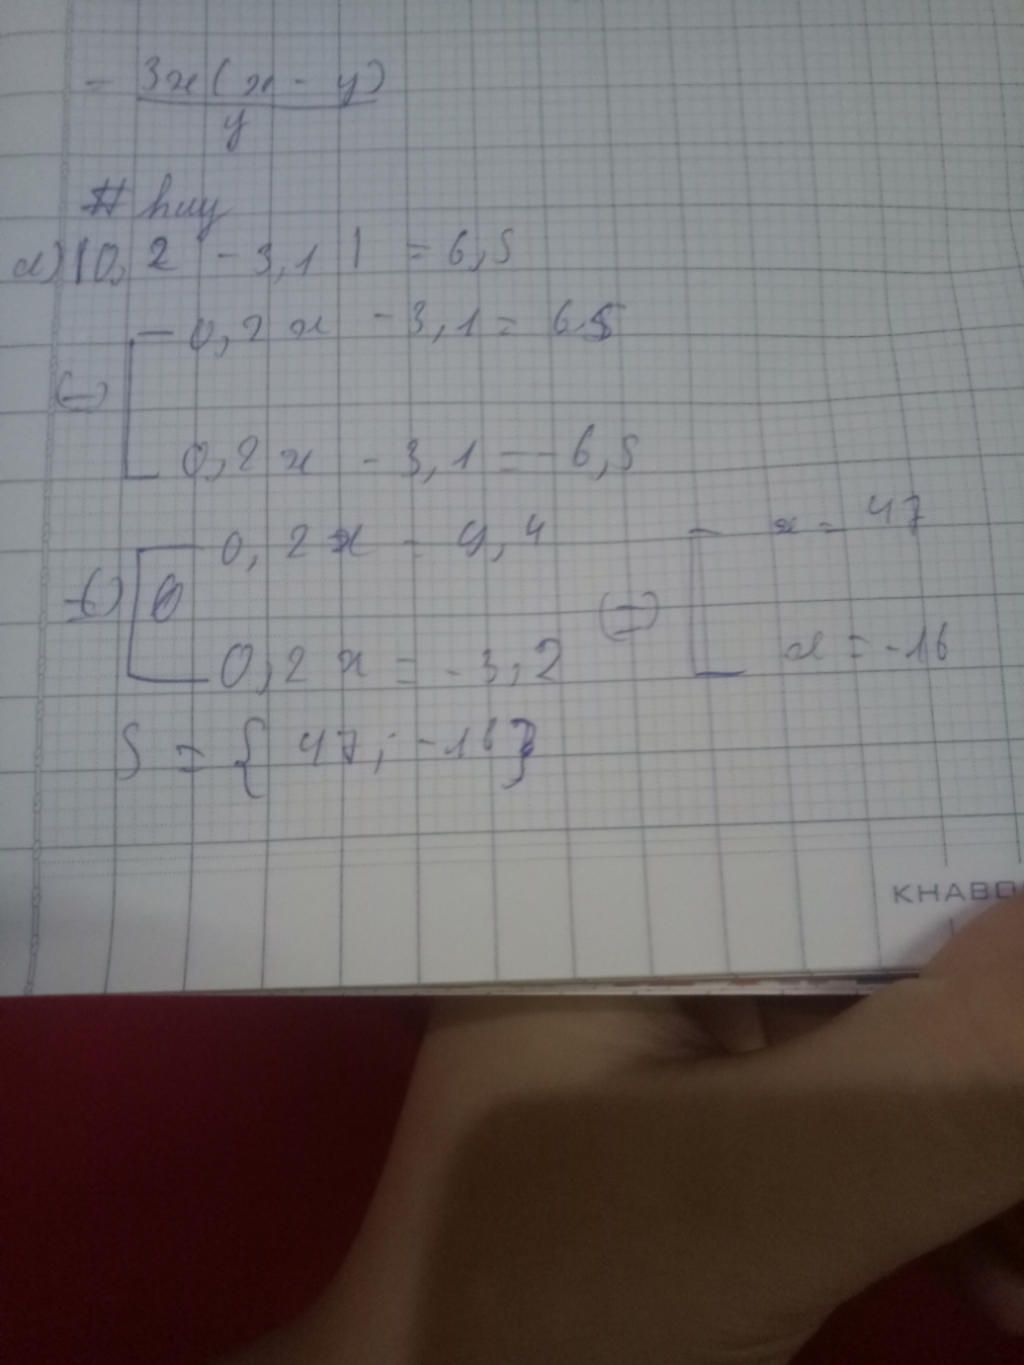 = 3x(x - y)
y
# huy
d) |0,2 - 3,1| = 6,5
0,2x - 3,1 = 6,5
(=)
0,2x - 3,1 = -6,5
0,2x = 9,4
x = 47
(=)
(=)
0,2x = -3,2
x = -16
S = { 47; -16}
KHABO